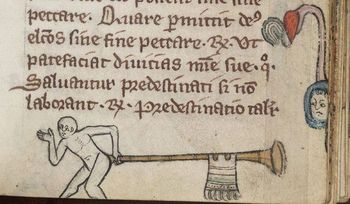 peccare. Quare permittit de9
el̄cos sine fine peccare. R̄. Vt
patefaciat diuitias mīe sue. q̄.
Saluantur predestinati si nō
laborant. R̄. Predestinatio talr̄